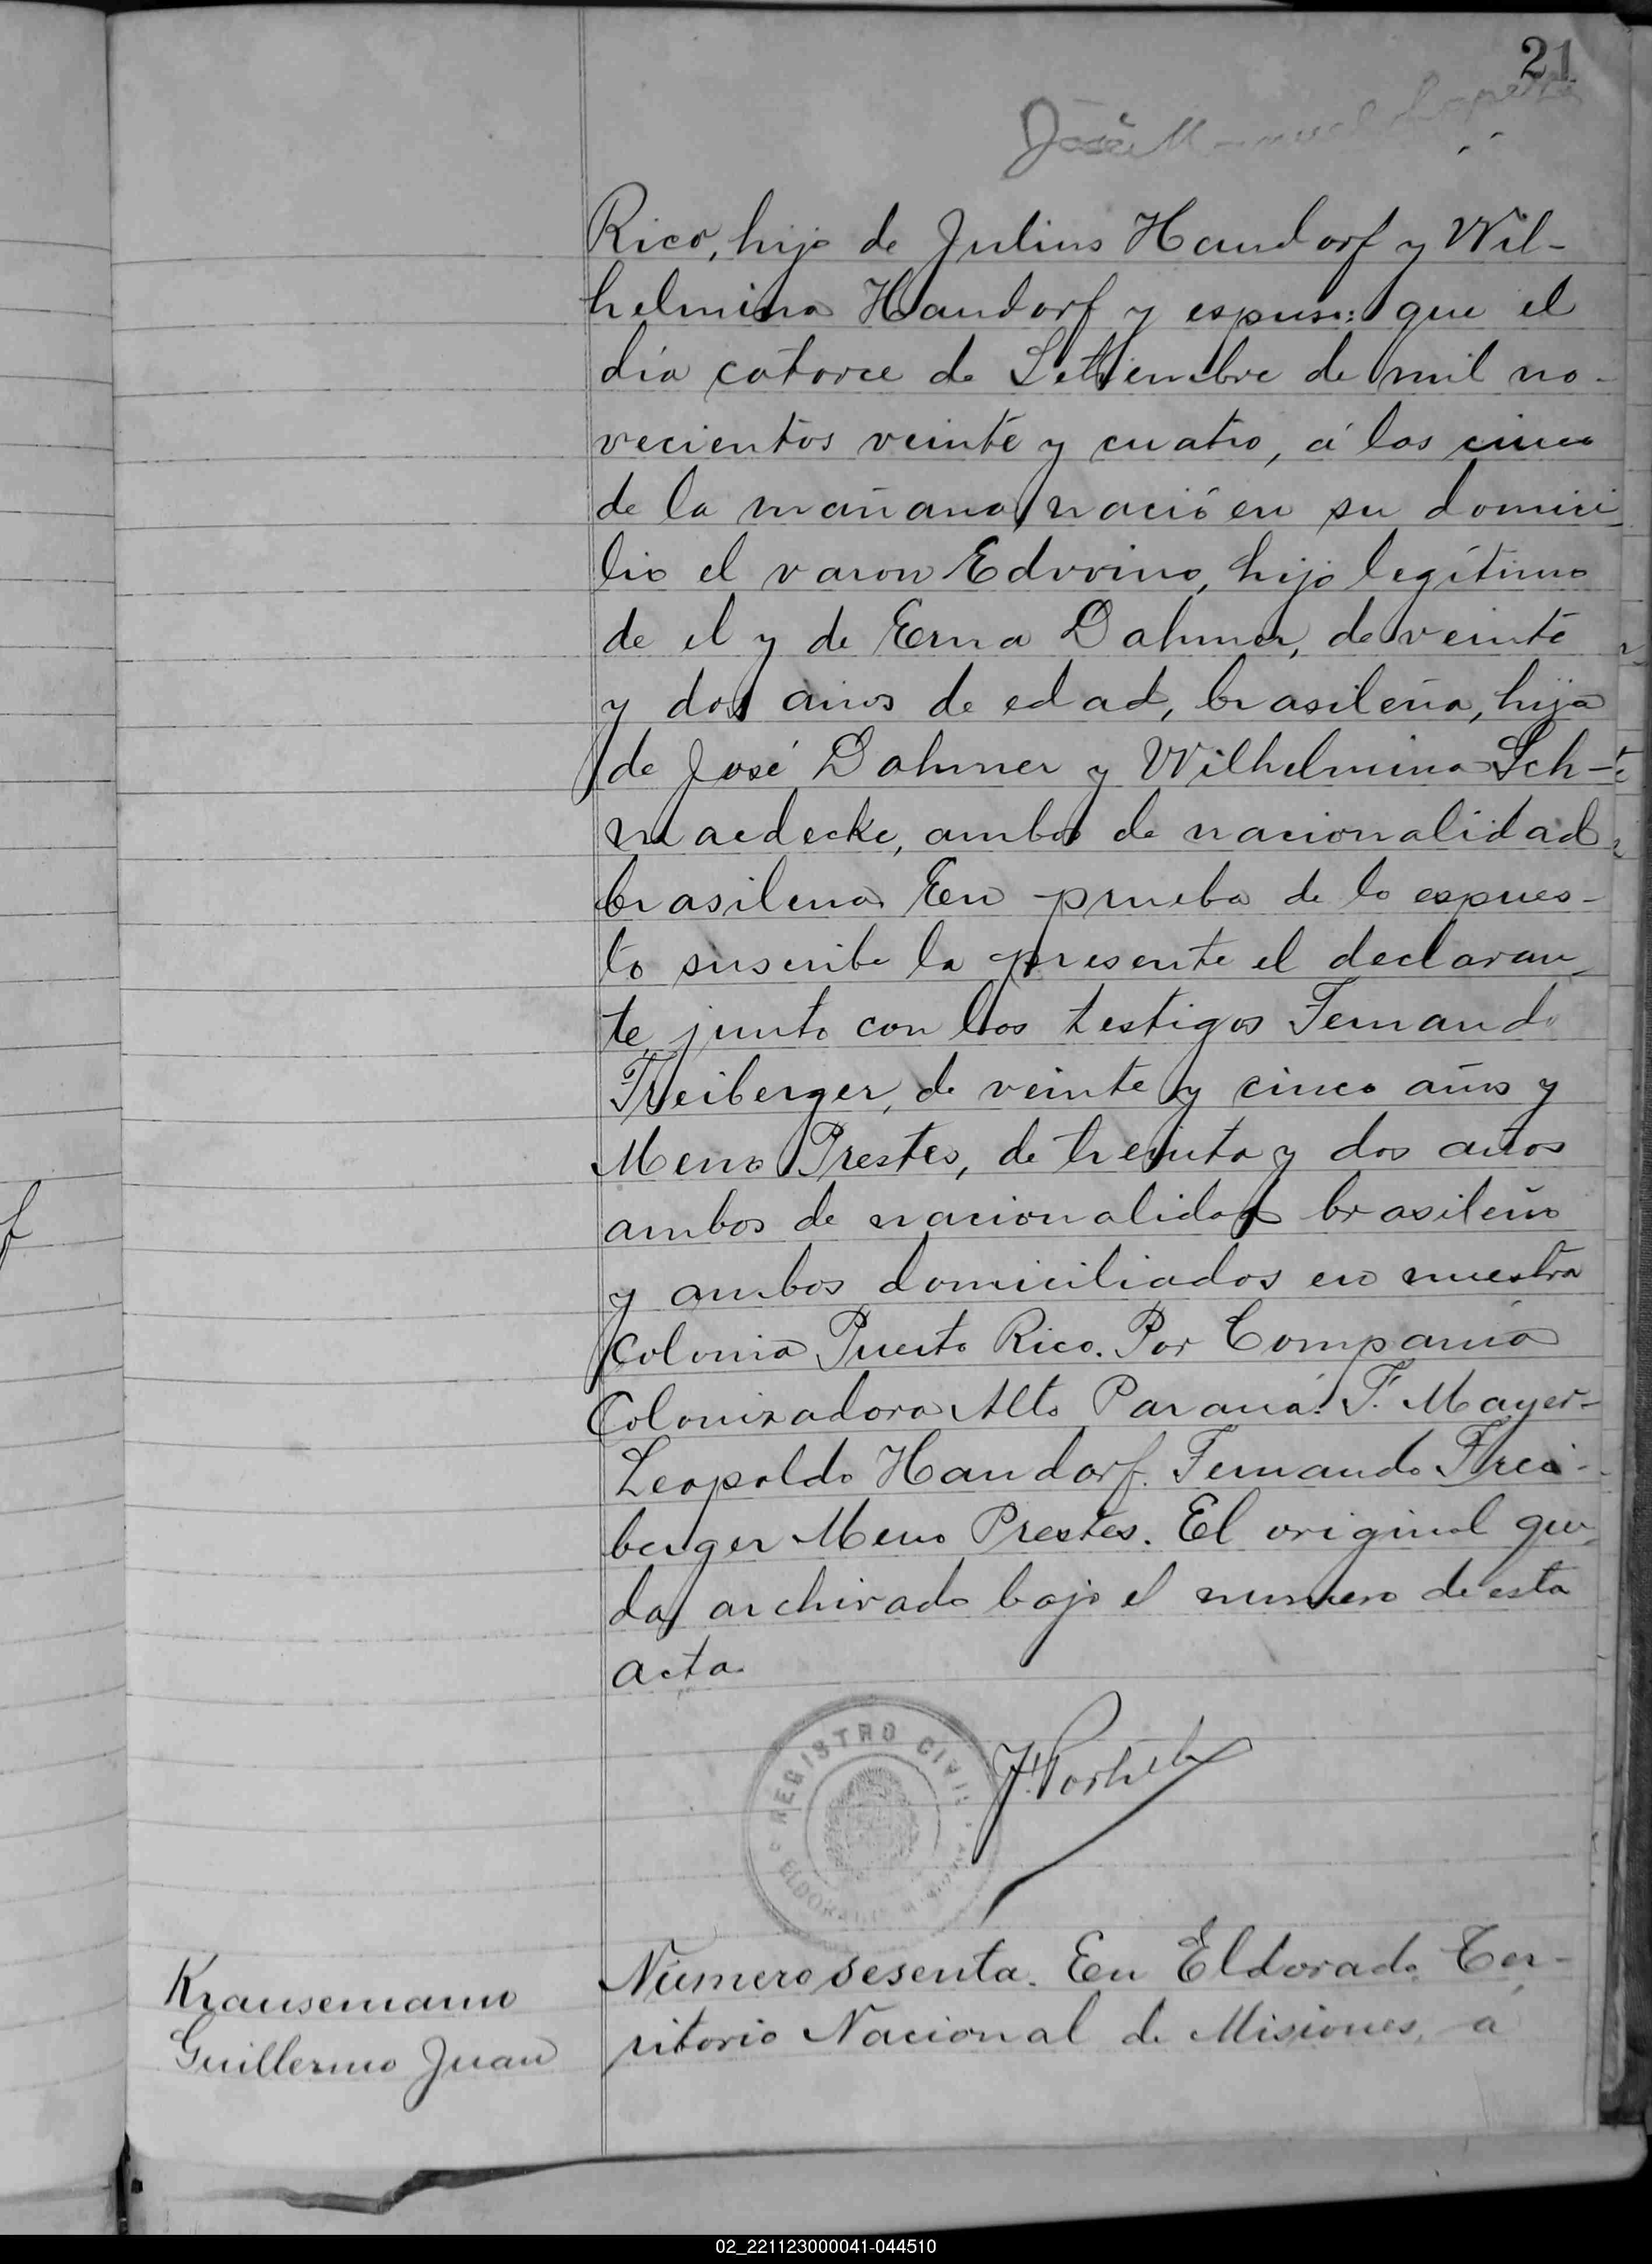 21
José Manuel
Rico, hijo de Julius Handorf y Wil-
helmina Handorf y espuso: que el
día catorce de Settiembre de mil no-
vecientos veinte y cuatro, á las cinco
de la mañana, nació en su domici
lio el varon Edwino, hijo legítimo
de el y de Erna Dahmer, de veinte
y dos años de edad, brasileña, hija
de José Dahmer y Wilhelmina Sch-
maedecke, ambos de nacionalidad
brasilena. En prueba de lo espues-
to suscribe la presente el declaran-
te junto con los testigos Fernando
Freiberger, de veinte y cinco años y
Meno Prestes, de treinta y dos años
ambos de nacionalidad brasileño
y ambos domiciliados en nuestra
Colonia Puerto Rico. Por Compania
Colonizadora Alto Paraná: F. Mayer-
Leopoldo Handorf. Fernando Frei-
berger Meno Prestes. El original que-
da archivado bajo el numero de esta
acta.
REGISTRO CIVIL
ELDORADO
Krausemann
Guillermo Juan
Número sesenta. En Eldorado Ter-
ritorio Nacional de Misiones, a
02_221123000041-044510